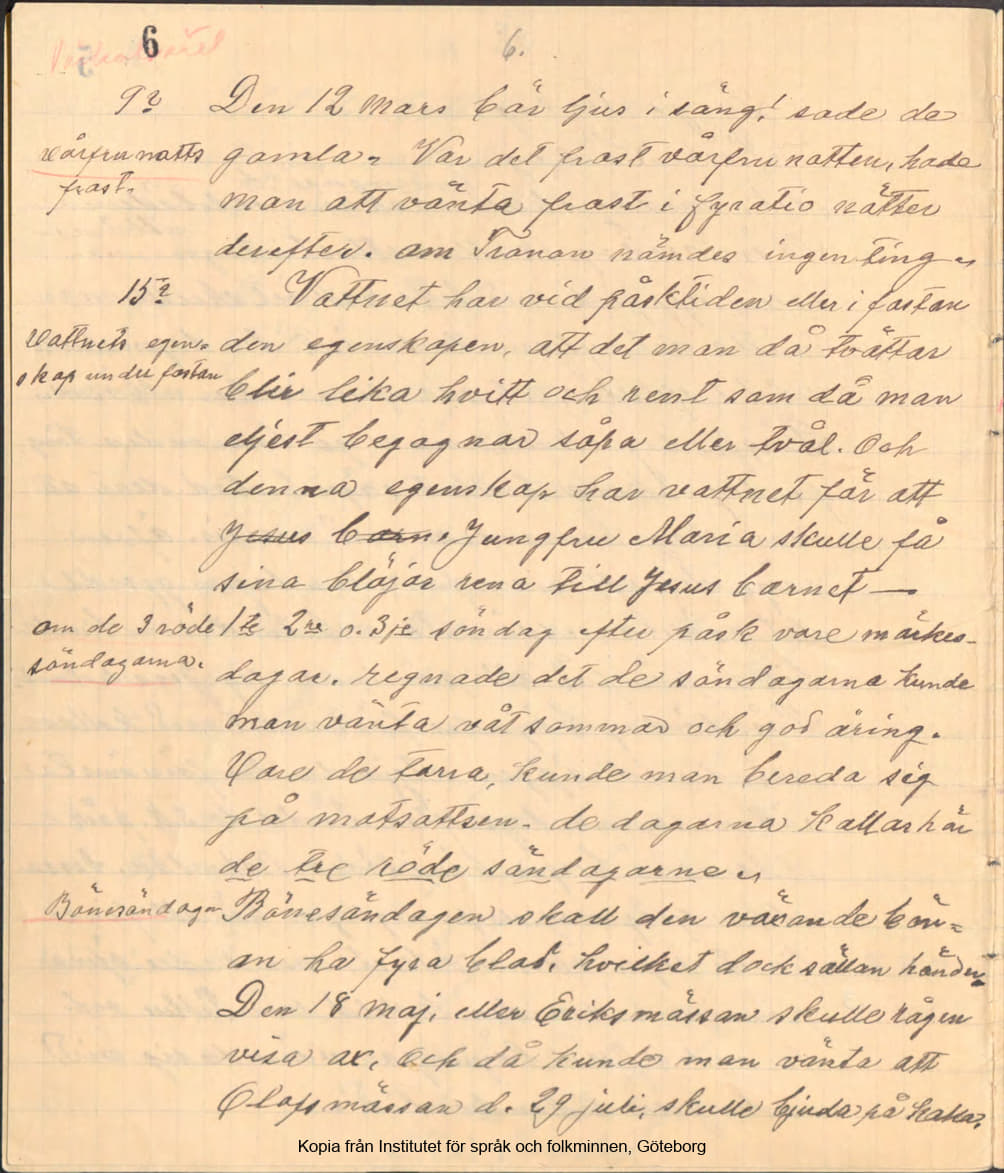 6
6.
9?
Den 12 Mars bär ljus i säng! sade de
vårfrunatts
frost.
gamla. Var det frost vårfru natten, hade
man att vänta frost i fyratio nätter
derefter. om Tranan nämdes ingenting.
15?
Vattnet har vid påsktiden eller i fastan
Vattnets egen-
skap under fastan
den egenskapen, att det man då tvättar
blir lika hvitt och rent som då man
eljest begagnar såpa eller tvål. Och
denna egenskap har vattnet för att
Jesus barn. Jungfru Maria skulle få
sina blöjor rena till Jesus barnet —
om de 3 röde
söndagarna.
1te 2re o. 3je söndag efter påsk vore märkes-
dagar. regnade det de söndagarna kunde
man vänta våt sommar och god äring.
Vore de torra, kunde man bereda sig
på motsattsen. de dagarna kallas här
de tre röde söndagarne.
Bönesöndagen
Bönesöndagen skall den växande bön-
an ha fyra blad, hvilket dock sällan händer.
Den 18 maj, eller Eriksmässan skulle rågen
visa ax, och då kunde man vänta att
Olofsmässan d. 29 juli, skulle bjuda på kaka.
Kopia från Institutet för språk och folkminnen, Göteborg